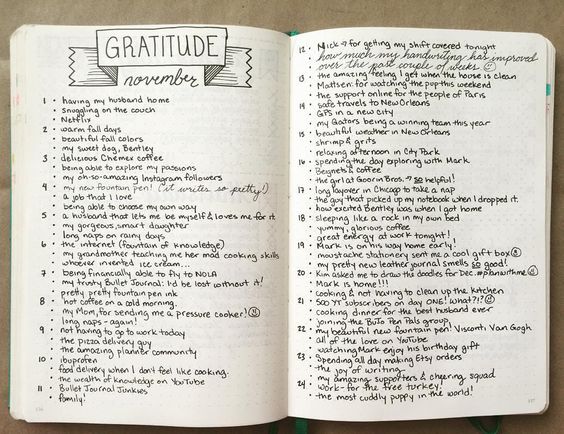 GRATITUDE
november
1 • having my husband home
• snuggling on the couch
• Netflix
2 • warm fall days
• beautiful fall colors
• my sweet dog, Bentley
3 • delicious Chemex coffee
• being able to explore my passions
• my oh-so-amazing Instagram followers
4 • my new fountain pen! (it writes so pretty!)
• a job that I love
• being able to choose my own way
5 • a husband that lets me be myself & loves me for it
• my gorgeous, smart daughter
• long naps on rainy days
6 • the internet (fountain of knowledge)
• my grandmother teaching me her mad cooking skills
• whoever invented ice cream...
7 • being financially able to fly to NOLA
• my trusty Bullet Journal: I'd be lost without it!
• pretty pretty fountain pen ink
8 • hot coffee on a cold morning.
• my Mom, for sending me a pressure cooker!
• long naps - again!
9 • not having to go to work today
• the pizza delivery guy
• the amazing planner community
10 • ibuprofen
• food delivery when I don't feel like cooking.
• the wealth of knowledge on YouTube
11 • Bullet Journal Junkies
• family!
12 • Nick → for getting my shift covered tonight
• how much my handwriting has improved
over the past couple of weeks
13 • the amazing feeling I get when the house is clean
• Mattsen: for watching the pup this weekend
• the support online for the people of Paris
14 • safe travels to New Orleans
• GPS in a new city
• my Gators being a winning team this year
15 • beautiful weather in New Orleans
• shrimp & grits
• relaxing afternoon in City Park
16 • spending the day exploring with Mark
• Beignets & coffee
• the girl at Goorin Bros. → so helpful!
17 • long layover in Chicago to take a nap
• the guy that picked up my notebook when I dropped it.
• how excited Bentley was when I got home
18 • sleeping like a rock in my own bed
• yummy, glorious coffee
• great energy at work tonight!
19 • Mark is on his way home early!
• moustache stationery sent me a cool gift box
• my pretty new leather journal smells so good!
20 • Kim asked me to draw the doodles for Dec. #planwithme
• Mark is home!!!
• cooking & not having to clean up the kitchen
21 • 500 YT subscribers on day ONE! What?!?
• cooking dinner for the best husband ever
• joining the BuJo Pen Pals group
22 • my beautiful new fountain pen! Visconti Van Gogh
• all of the love on YouTube
• watching Mark enjoy his birthday gift
23 • Spending all day making Etsy orders
• the joy of writing
• my amazing supporters & cheering squad
24 • work - for the free turkey!
• the most cuddly puppy in the world!